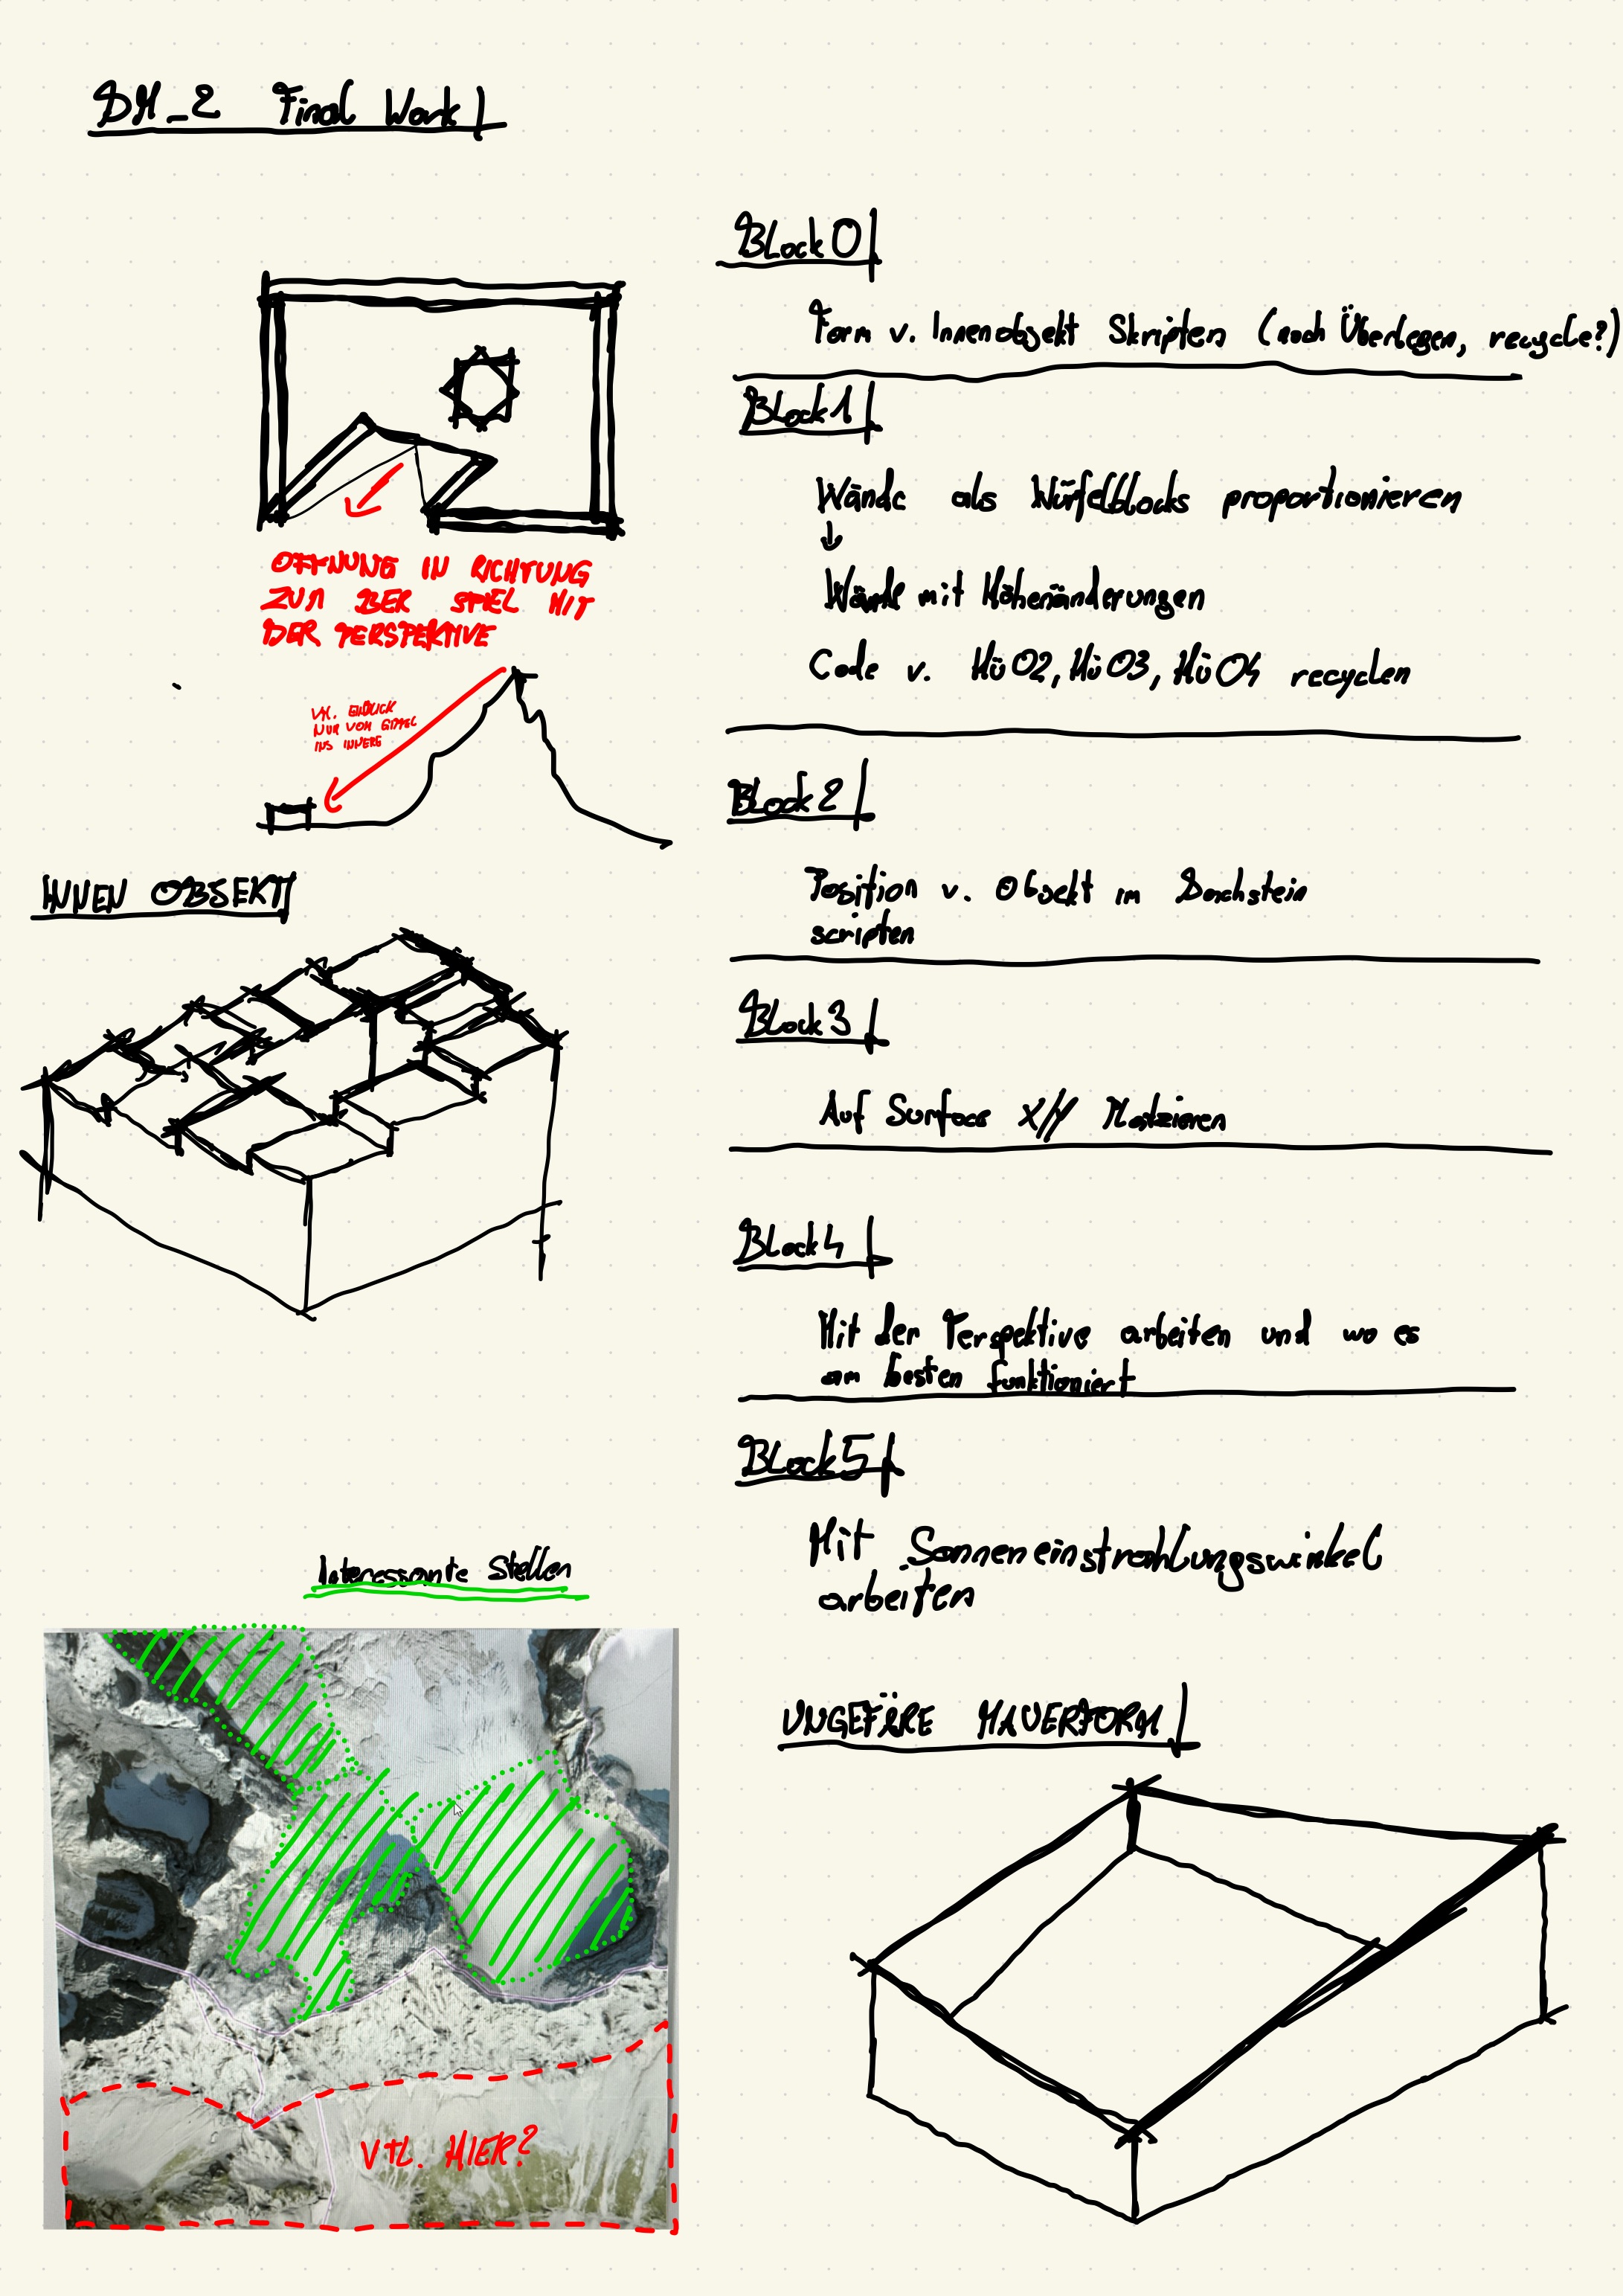 DM_2 Final Work
Block 0
Form v. Innenobjekt Skripten (noch Überlegen, recycle?)
Block 1
Wände als Würfelblocks proportionieren
↓
Wände mit Höhenänderungen
Code v. HÜ02, HÜ03, HÜ04 recyclen
ÖFFNUNG IN RICHTUNG
ZUM BER SPIEL MIT
DER PERSPEKTIVE
VTL. EINBLICK
NUR VOM GIPFEL
INS INNERE
Block 2
Position v. Objekt im Dachstein
scripten
INNEN OBJEKT
Block 3
Auf Surface X/Y Platzieren
Block 4
Mit der Perspektive arbeiten und wo es
am besten funktioniert
Block 5
Mit Sonneneinstrahlungswinkel
arbeiten
Interessante Stellen
VTL. HIER?
UNGEFÄRE MAUERFORM